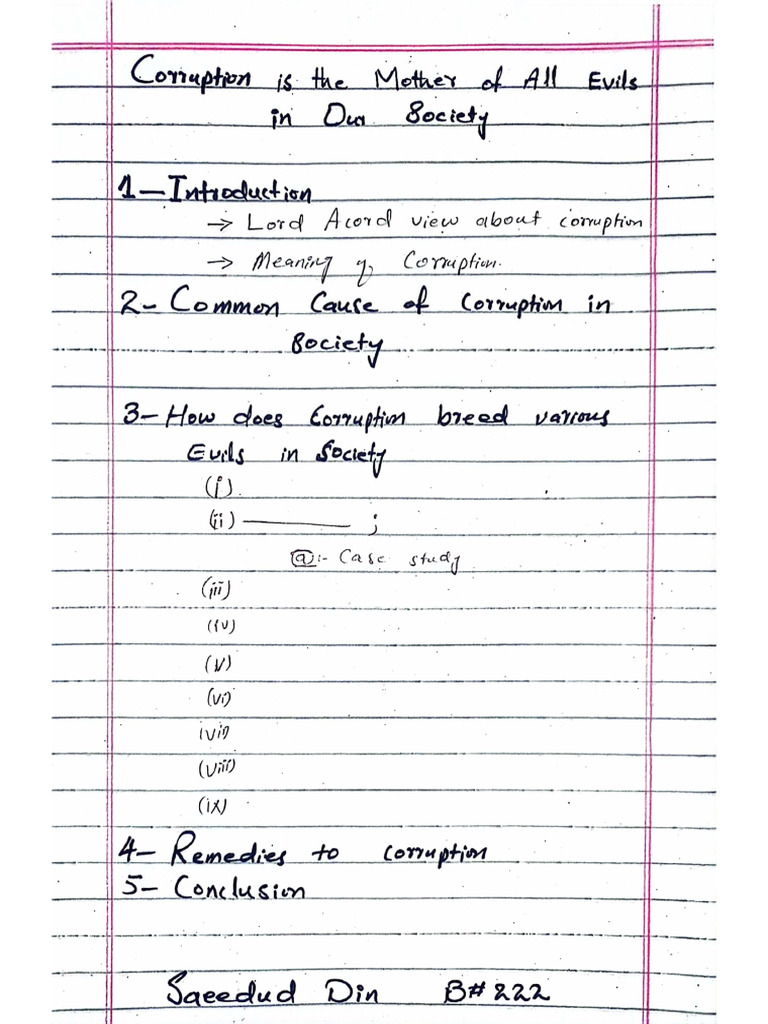 Corruption is the Mother of All Evils
in Our Society
1- Introduction
→ Lord Acord view about corruption
→ Meaning of Corruption.
2- Common Cause of Corruption in
Society
3- How does Corruption breed various
Evils in Society
(i).
(ii) ———— ;
(a):- Case study
(iii)
(iv)
(v)
(vi)
(vii)
(viii)
(ix)
4- Remedies to corruption
5- Conclusion
Saeedud Din B# 222